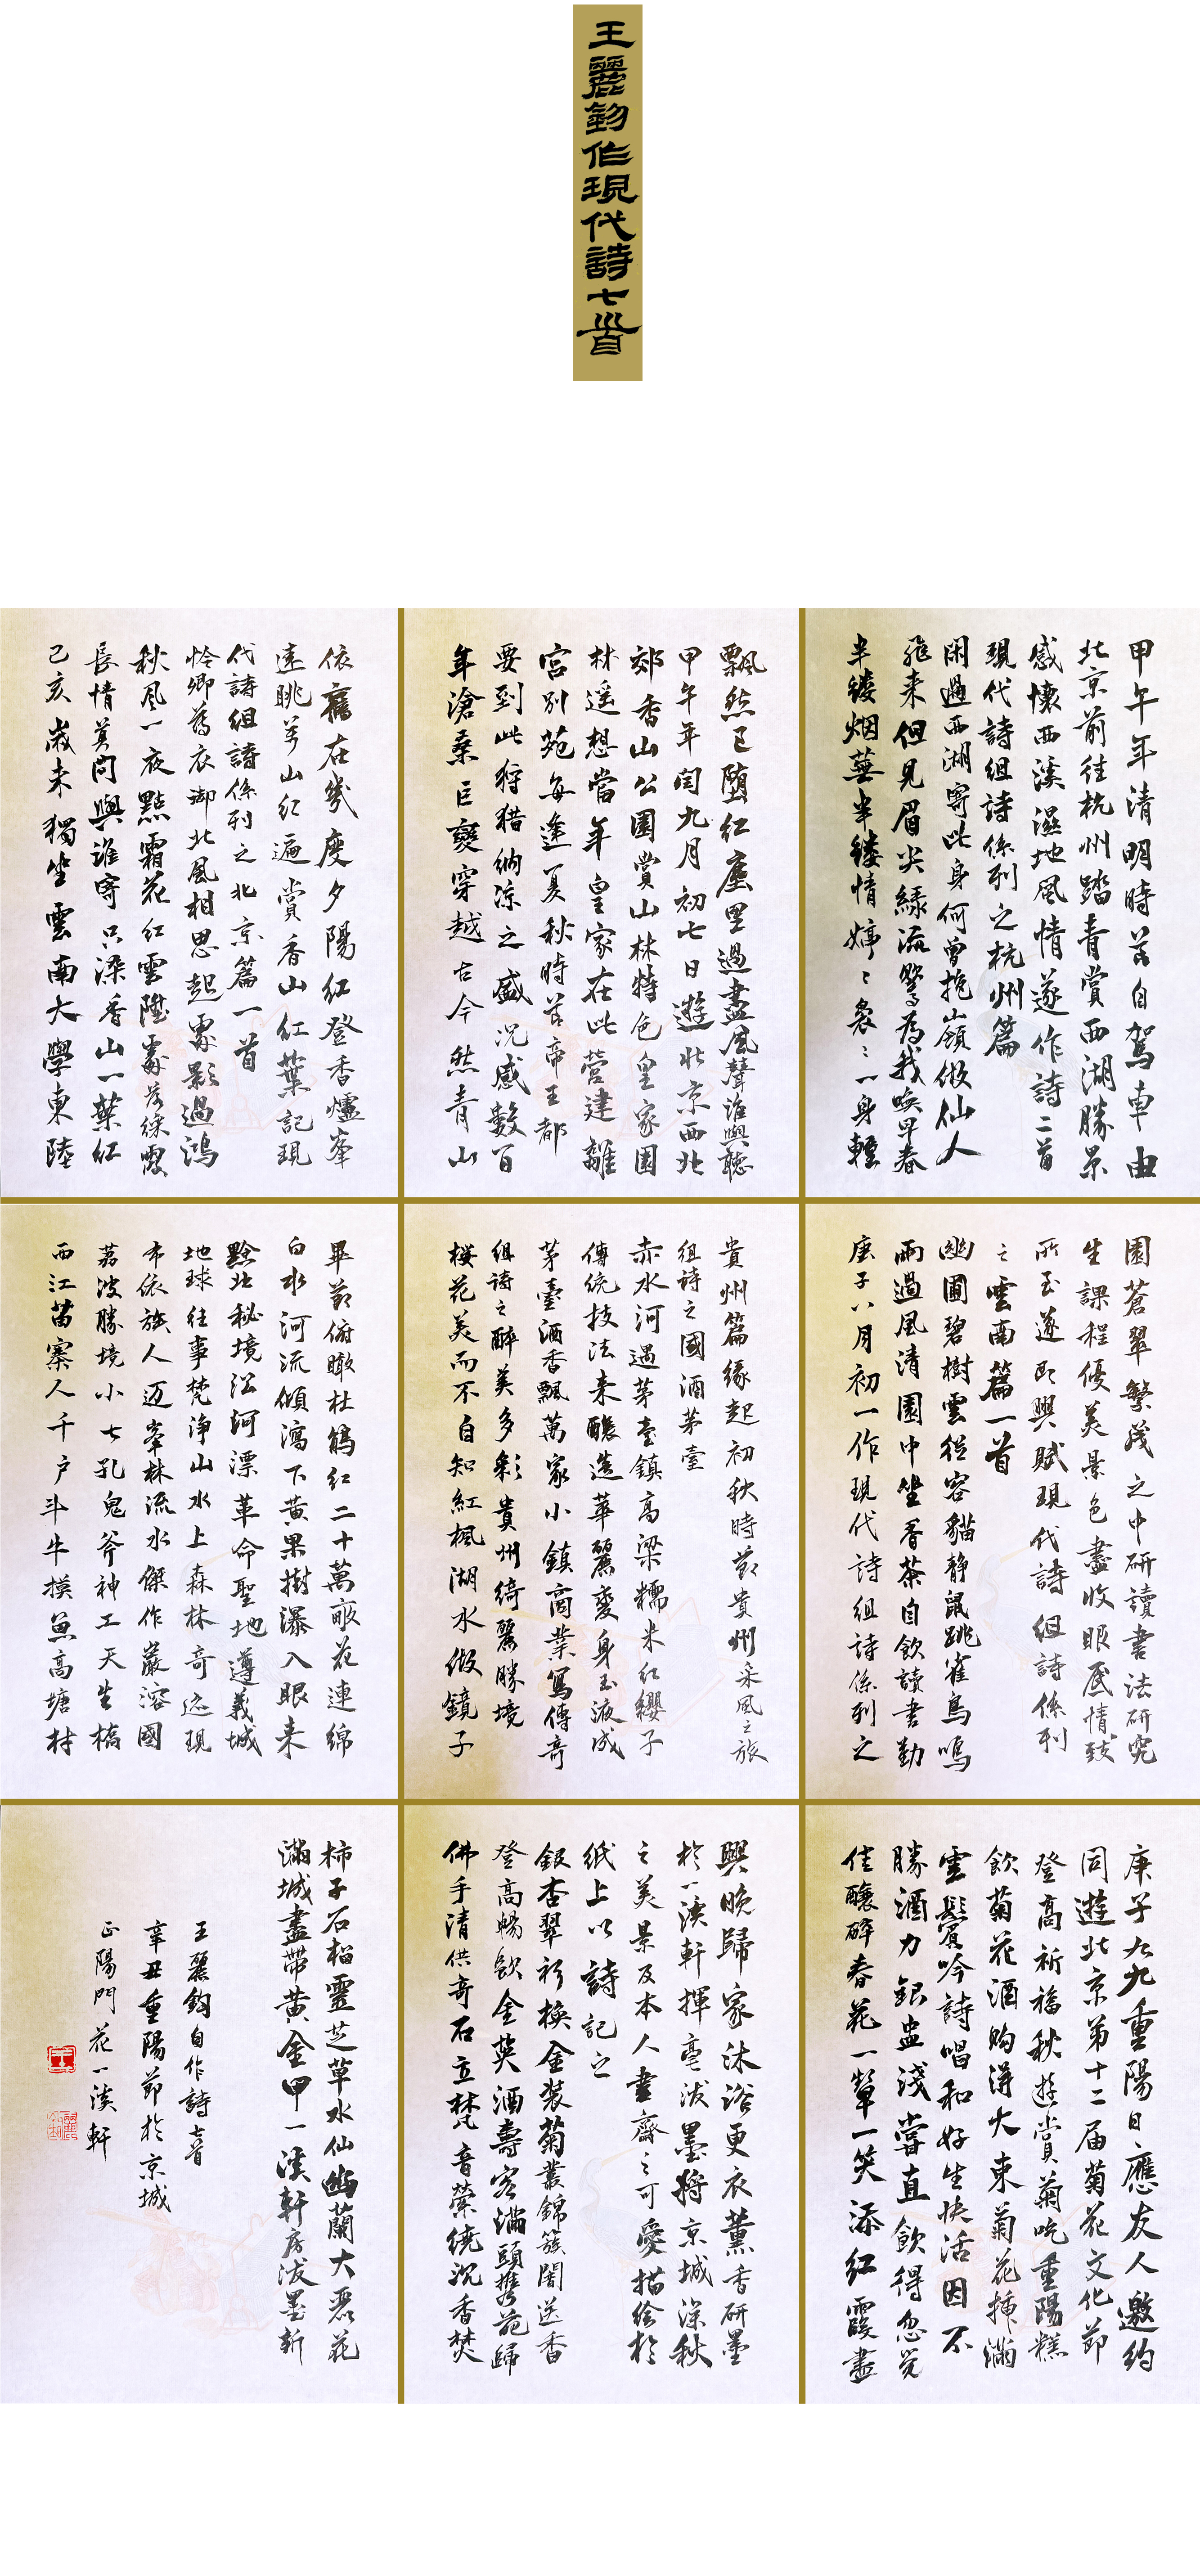 王麗鈞作現代詩七首
甲午年清明時節自驾車由
北京前往杭州踏青賞西湖勝景
感懷西溪濕地風情遂作詩二首
現代詩組詩係列之杭州篇
閑過西湖寄此身何曾抱嶺做仙人
飛来但見眉尖緑流鶯為我唤早春
半缕烟蕪半缕情婷〻裊〻一身輕
飄然已堕红塵里過盡風聲誰與聽
甲午年闰九月初七日遊北京西北
郊香山公園賞山林特色皇家園
林遥想當年皇家在此营建離
宫别苑每逢夏秋時节帝王都
要到此狩猎纳凉之盛况感數百
年滄桑巨變穿越古今然青山
依舊在幾度夕陽红登香爐峯
遠眺萬山红遍賞香山红葉記現
代詩組詩係列之北京篇一首
怜卿薄衣御北風相思起處影過鴻
秋風一夜點霜花红雲陞處落綵霞
長情莫問與誰寄只染香山一葉红
己亥歲末獨坐雲南大學東陸
園蒼翠繁茂之中研讀書法研究
生課程優美景色盡收眼底情致
所至遂即興赋現代詩組詩係列
之雲南篇一首
幽圃碧樹雲從容貓静鼠跳雀鳥鳴
雨過風清園中坐香茶自飲讀書勤
庚子八月初一作現代詩組詩係列之
貴州篇緣起初秋時節貴州采風之旅
组詩之國酒茅臺
赤水河邊茅臺鎮高梁糯米红纓子
傳统技法来釀造華麗變身玉液成
茅臺酒香飄萬家小鎮商業寫傳奇
组詩之醉美多彩貴州綺麗勝境
樱花美而不自知紅楓湖水做鏡子
畢節俯瞰杜鹃红二十萬畝花連綿
白水河流傾瀉下黄果樹瀑入眼来
黔北秘境江河漂革命聖地遵義城
地球往事梵净山水上森林奇迹現
布依族人迈峯林流水傑作巖溶國
荔波勝境小七孔鬼斧神工天生橋
西江苗寨人千户斗牛摸魚高塘村
庚子九九重陽日應友人邀約
同遊北京第十二届菊花文化節
登高祈福秋遊賞菊吃重陽糕
飲菊花酒购得大東菊花插滿
雲鬢吟詩唱和好生快活因不
勝酒力银盅淺嘗直飲得忽觉
佳釀醉春花一颦一笑添红霞盡
興晚歸家沐浴更衣薰香研墨
於一溪軒揮毫泼墨將京城深秋
之美景及本人書齋之可愛描绘於
纸上以詩記之
銀杏翠衫换金装菊叢錦簇闇送香
登高暢飲金英酒壽客滿頭携苑歸
佛手清供奇石立梵音縈繞沉香焚
柿子石榴靈芝草水仙幽蘭大麗花
滿城盡帶黄金甲一溪軒房泼墨新
王麗鈞自作詩七首
辛丑重陽節於京城
正陽門花一溪軒